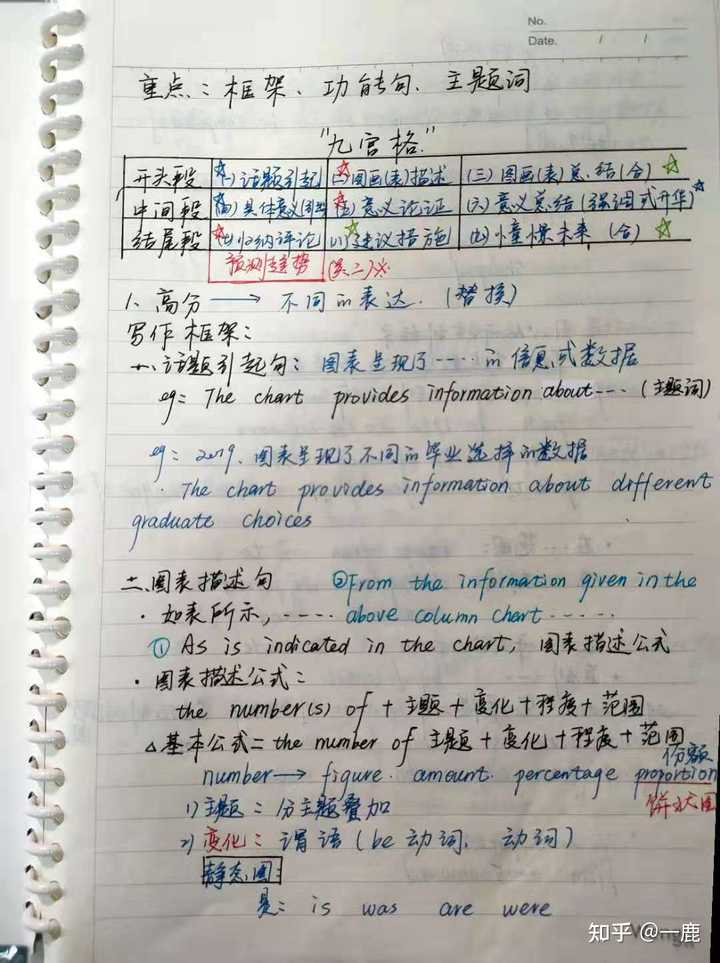 No.
Date. / /
重点：框架、功能句、主题词
"九宫格"
开头段 ☆(一)话题引起 ☆(二)图画(表)描述 (三)图画(表)总结(合) ☆
中间段 ☆(四)具体意义 ☆(五)意义论证 (六)意义总结(强调式升华)☆
结尾段 ☆(七)归纳评论 (八)建议措施 (九)憧憬未来 (合) ☆
预测趋势 (英二)※
1、高分 → 不同的表达.(替换)
写作框架：
十一、话题引起句：图表呈现了……的信息或数据
eg: The chart provides information about……(主题词)
eg: 2019. 图表呈现了不同的毕业选择的数据
· The chart provides information about different
graduate choices
十二、图表描述句 ②From the information given in the
· 如表所示，…… above column chart……
① As is indicated in the chart, 图表描述公式
· 图表描述公式：
the number(s) of + 主题 + 变化 + 程度 + 范围
△基本公式：the number of 主题 + 变化 + 程度 + 范围
份额
number → figure. amount. percentage proportion
饼状图
1) 主题：分主题叠加
2) 变化：谓语 (be动词、动词)
静态图：
是：is was are were
知乎 @一鹿